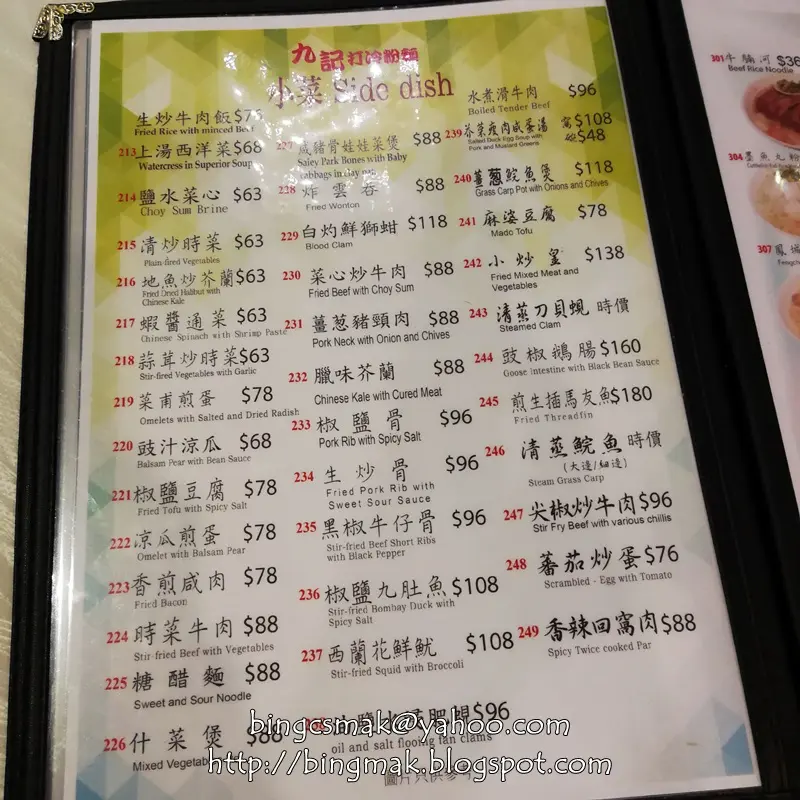 九記打冷粉麵
小菜 Side dish
生炒牛肉飯 $75
Fried Rice with minced Beef
213 上湯西洋菜 $68
Watercress in Superior Soup
214 鹽水菜心 $63
Choy Sum Brine
215 清炒時菜 $63
Plain-fired Vegetables
216 地魚炒芥蘭 $63
Fried Dried Halibut with
Chinese Kale
217 蝦醬通菜 $63
Chinese Spinach with Shrimp Paste
218 蒜茸炒時菜 $63
Stir-fired Vegetables with Garlic
219 菜甫煎蛋 $78
Omelets with Salted and Dried Radish
220 豉汁涼瓜 $68
Balsam Pear with Bean Sauce
221 椒鹽豆腐 $78
Fried Tofu with Spicy Salt
222 涼瓜煎蛋 $78
Omelet with Balsam Pear
223 香煎咸肉 $78
Fried Bacon
224 時菜牛肉 $88
Stir-fired Beef with Vegetables
225 糖醋麵 $88
Sweet and Sour Noodle
226 什菜煲 $88
Mixed Vegetab
227 咸豬骨娃娃菜煲 $88
Saley Park Bones with Baby
cabbags in clay pan
228 炸雲吞 $88
Fried Wonton
229 白灼鮮獅蚶 $118
Blood Clam
230 菜心炒牛肉 $88
Fried Beef with Choy Sum
231 薑葱豬頸肉 $88
Pork Neck with Onion and Chives
232 臘味芥蘭 $88
Chinese Kale with Cured Meat
233 椒鹽骨 $96
Pork Rib with Spicy Salt
234 生炒骨 $96
Fried Pork Rib with
Sweet Sour Sauce
235 黑椒牛仔骨 $96
Stir-fried Beef Short Ribs
with Black Pepper
236 椒鹽九肚魚 $108
Stir-fried Bombay Duck with
Spicy Salt
237 西蘭花鮮魷 $108
Stir-fried Squid with Broccoli
$96
oil and salt flooing fan clams
水煮滑牛肉 $96
Boiled Tender Beef
239 芥菜瘦肉咸蛋湯 窩 $108
$48
Salted Duck Egg Soup with
Pork and Mustard Greens
240 薑葱鯇魚煲 $118
Grass Carp Pot with Onions and Chives
241 麻婆豆腐 $78
Mado Tofu
242 小炒皇 $138
Fried Mixed Meat and
Vegetables
243 清蒸刀貝蜆 時價
Steamed Clam
244 豉椒鵝腸 $160
Goose Intestine with Black Bean Sauce
245 煎生插馬友魚 $180
Fried Threadfin
246 清蒸鯇魚 時價
(大邊/細邊)
Steam Grass Carp
247 尖椒炒牛肉 $96
Stir Fry Beef with various chillis
248 蕃茄炒蛋 $76
Scrambled - Egg with Tomato
249 香辣回窩肉 $88
Spicy Twice cooked Par
圖片只供參考
301 牛腩河 $36
Beef Rice Noodle
304 墨魚丸粉
307 鳳城
bingcsmak@yahoo.com
http://bingmak.blogspot.com